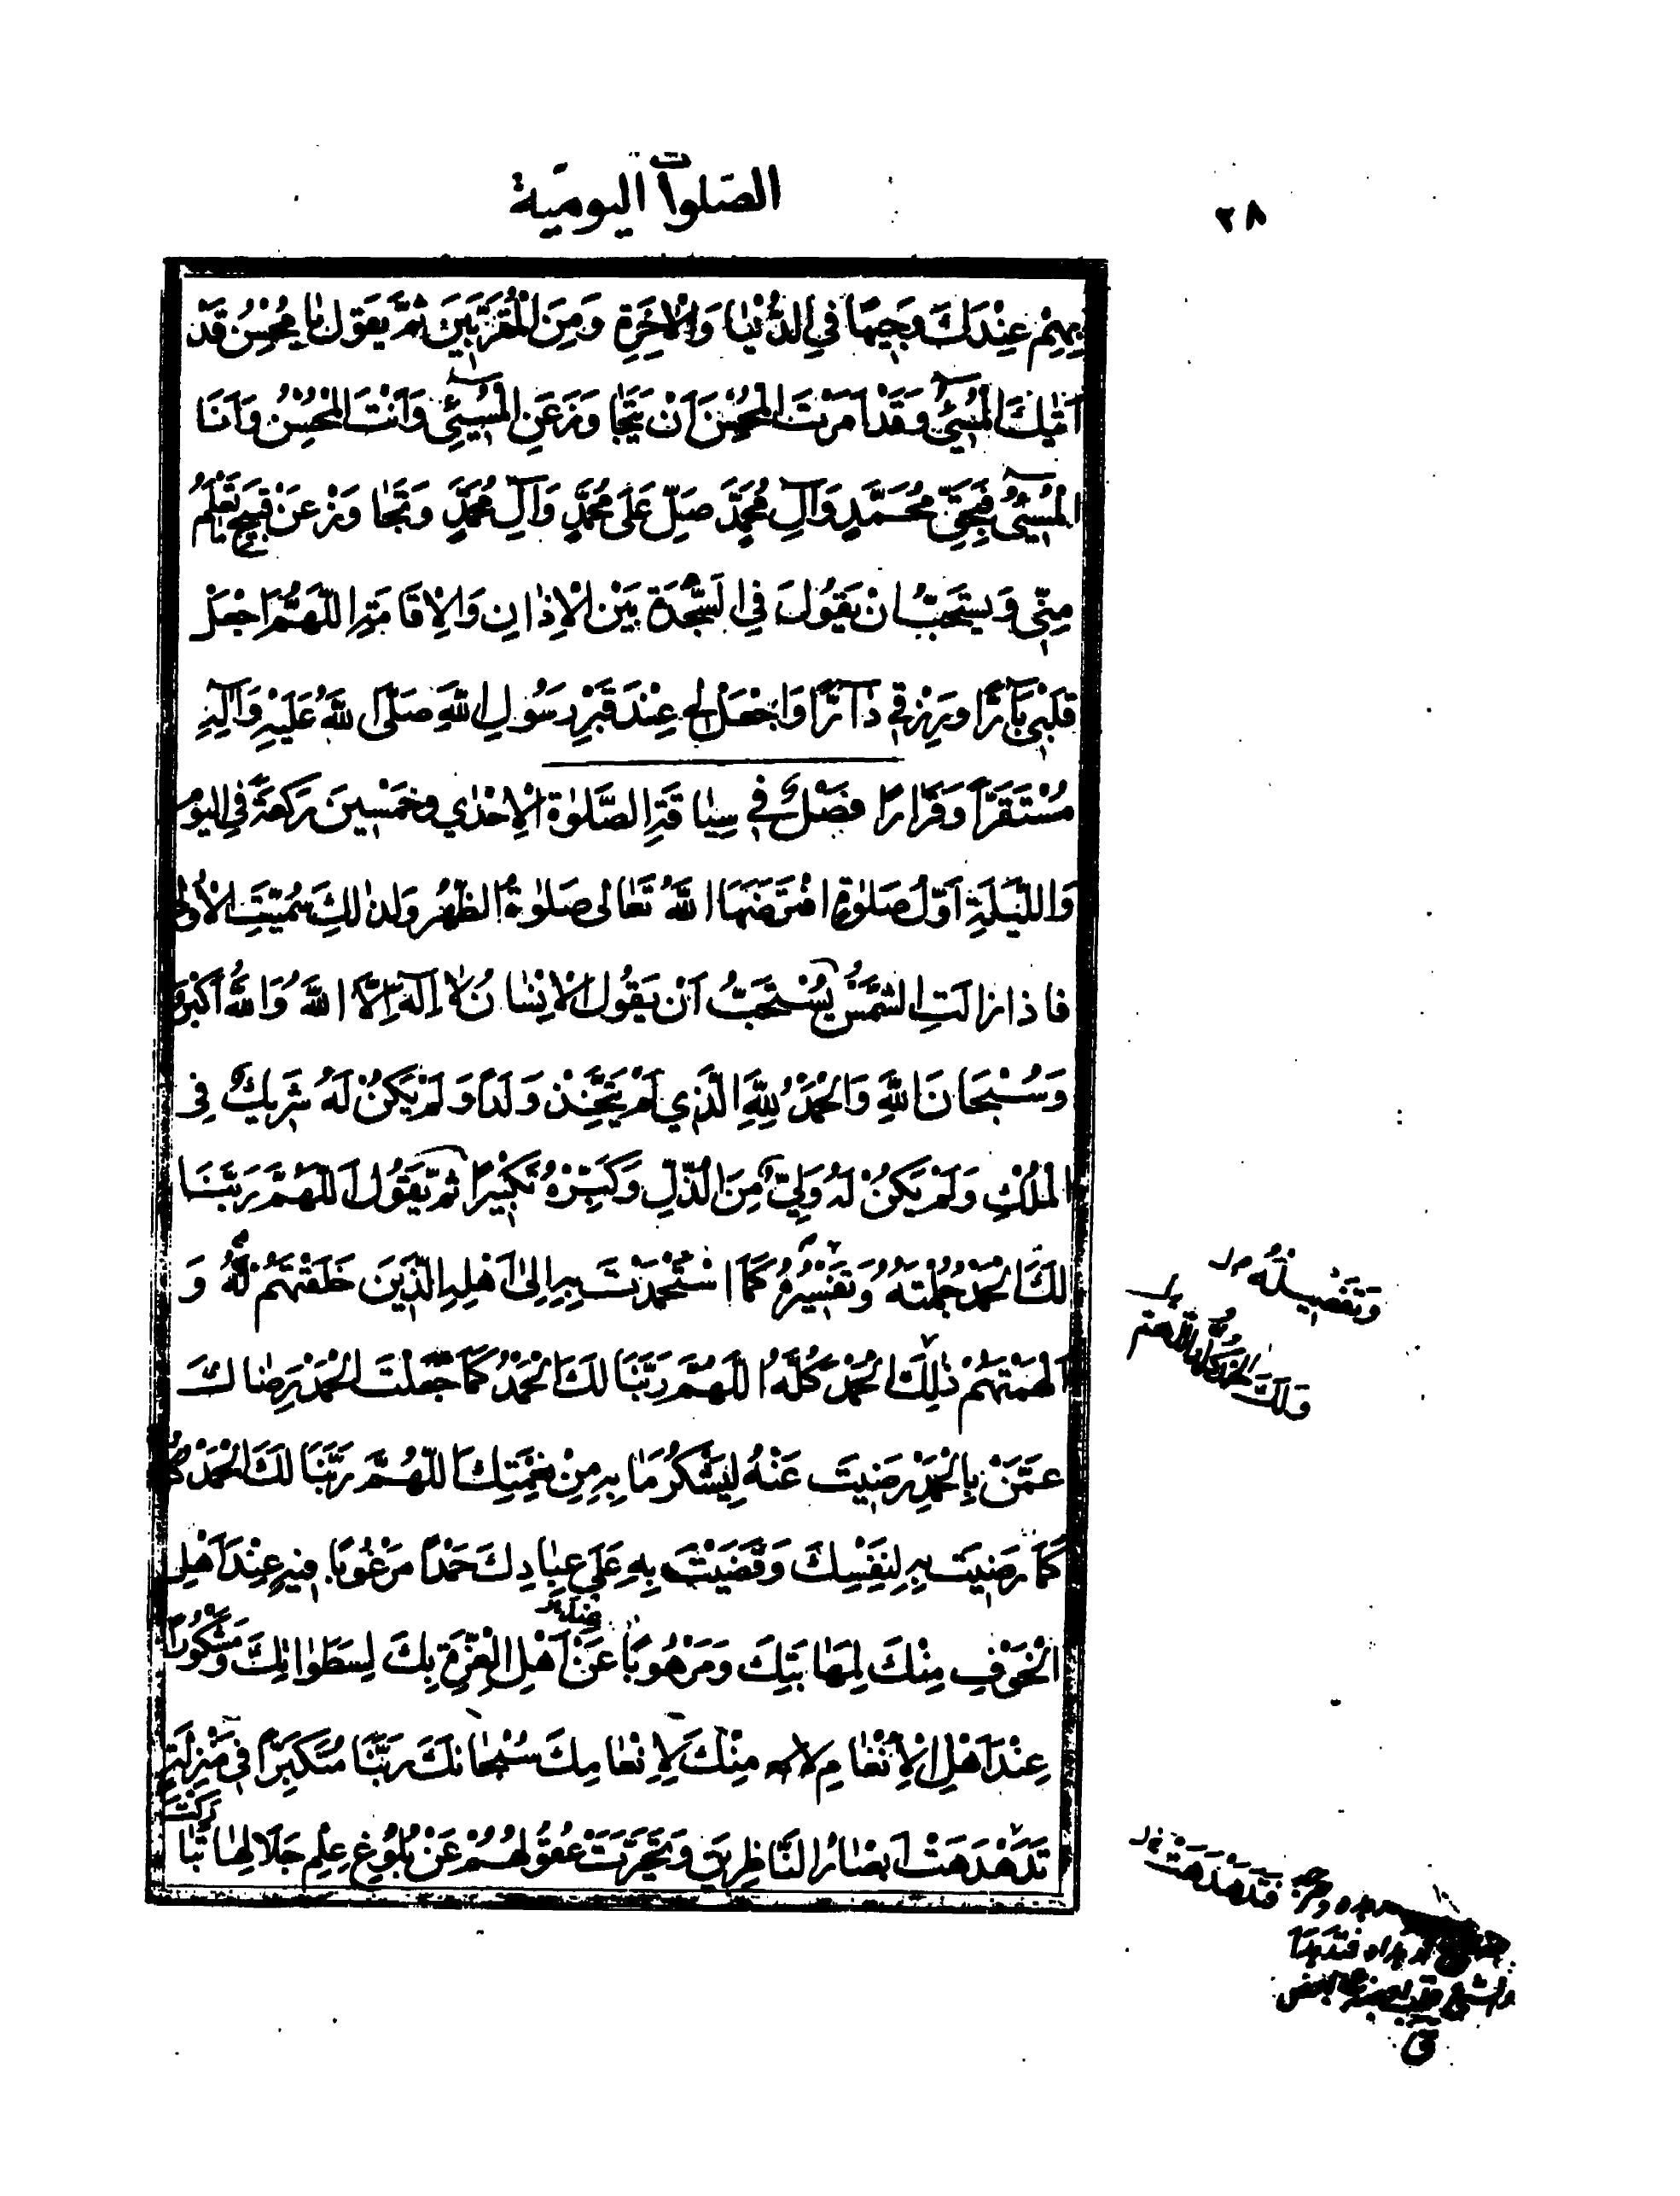 ٢٨
الصلوات اليومية
بِهِمْ عِنْدَكَ وَجِيهًا فِي الدُّنْيَا وَالْاخِرَةِ وَمِنَ الْمُقَرَّبِينَ ثُمَّ يَقُولُ يَا مُحْسِنُ قَدْ
اَتٰيكَ الْمُسِيئُ وَقَدْ اَمَرْتَ الْمُحْسِنَ اَنْ يَتَجَاوَزَ عَنِ الْمُسِيئِ وَاَنْتَ الْمُحْسِنُ وَاَنَا
الْمُسِيئُ فَبِحَقِّ مُحَمَّدٍ وَآلِ مُحَمَّدٍ صَلِّ عَلٰى مُحَمَّدٍ وَآلِ مُحَمَّدٍ وَتَجَاوَزْ عَنْ قَبِيحِ مَا تَعْلَمُ
مِنّي وَيستَحَبُّ انْ يَقُولَ فِي السَّجْدَةِ بَيْنَ الْاَذَانِ وَالْاِقَامَةِ اللّهُمَّ اجْعَلْ
قَلْبِي بَآرًّا وَرِزْقِي دَآرًّا وَاجْعَلْ لِي عِنْدَ قَبْرِ رَسُولِ اللّهِ صَلَّى اللّهُ عَلَيْهِ وَآلِهِ
مُسْتَقَرًّا وَقَرَارًا فَصْلٌ فِي سِيَاقَةِ الصَّلٰوةِ الْاِحْدٰي وخَمْسِينَ رَكعَةً فِي اليَومِ
وَاللَّيْلَةِ اَوَّلُ صَلٰوةٍ افْتَرَضَهَا اللّهُ تَعَالٰى صَلٰوةُ الظُّهْرِ وَلِذٰلِكَ سُمِّيَتِ الْاُولٰى
فَاذا زالَتِ الشَّمْسُ يُسْتَحَبُّ اَنْ يَقُولَ الْاِنْسَانُ لَا اِلٰهَ اِلَّا اللّهُ وَاللّهُ اَكْبَرُ
وَسُبْحَانَ اللّهِ وَالْحَمْدُ لِلّهِ الَّذِي لَمْ يَتَّخِذْ وَلَدًا وَلَمْ يَكُنْ لَهُ شَرِيكٌ فِي
الْمُلْكِ وَلَمْ يَكُنْ لَهُ وَلِيٌّ مِنَ الذُّلِّ وَكَبِّرْهُ تَكْبِيرًا ثُمَّ يَقُولُ اَللّهُمَّ رَبَّنَا
لَكَ الْحَمْدُ جُمْلَتُهُ وَتَفْسِيرُهُ كَمَا اسْتَحْمَدْتَ بِهِ اِلٰى اَهْلِهِ الَّذِينَ خَلَقْتَهُمْ لَهُ وَ
اَلْهَمْتَهُمْ ذٰلِكَ الْحَمْدَ كُلَّهُ اللّهُمَّ رَبَّنَا لَكَ الْحَمْدُ كَمَا جَعَلْتَ الْحَمْدَ رِضَاكَ
عَمَّنْ بِالْحَمْدِ رَضِيتَ عَنْهُ لِيَشْكُرَ مَا بِهِ مِنْ نِعْمَتِكَ اللّهُمَّ رَبَّنَا لَكَ الْحَمْدُ
كَمَا رَضِيتَ بِهِ لِنَفْسِكَ وَقَضَيْتَ بِهِ عَلٰى عِبَادِكَ حَمْدًا مَرْغُوبًا فِيهِ عِنْدَ اَهْلِ
الْخَوْفِ مِنْكَ لِمَهَابَتِكَ وَمَرْهُوبًا عَنْ اَهْلِ الْعِزَّةِ بِكَ لِسَطَوَاتِكَ وَمَشْكُورًا
عِنْدَ اَهْلِ الْاِنْعَامِ مِنْكَ لِاِنْعَامِكَ سُبْحَانَكَ رَبَّنَا مُتَكَبِّرًا فِي مَنْزِلَةٍ
تَدَهْدَهَتْ اَبْصَارُ النَّاظِرِينَ وَتَحَيَّرَتْ عُقُولُهُمْ عَنْ بُلُوغِ عِلْمِ جَلَالِهَا تَبَارَكْتَ
وَتَفْصِيلُهُ
وَلَكَ الْحَمْدُ كُلُّهُ اللّهُمَّ
فَتَدَهْدَهَتْ